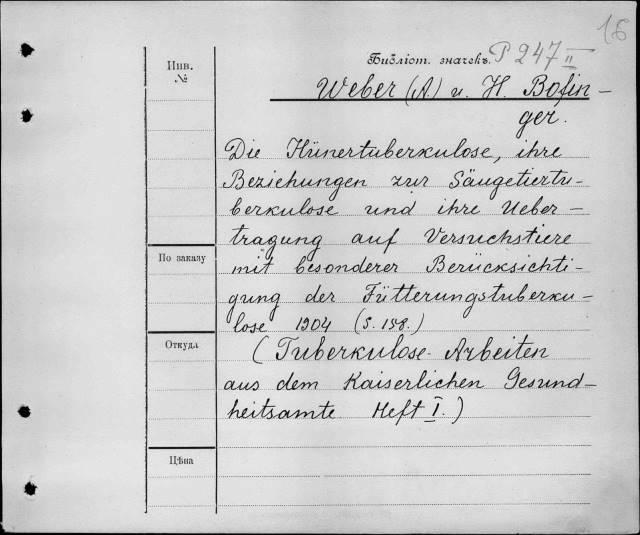 16
Инв.
№
Библіот. значекъ. P 247 II
Weber (A) u. H. Bofin-
ger.
Die Hünertuberkulose, ihre
Beziehungen zur Säugetiertu-
berkulose und ihre Ueber-
tragung auf Versuchstiere
По заказу
mit besonderer Berücksichti-
gung der Fütterungstuberku-
lose 1904 (S. 158.)
Откуда
(Tuberkulose-Arbeiten
aus dem Kaiserlichen Gesund-
heitsamte Heft I.)
Цѣна